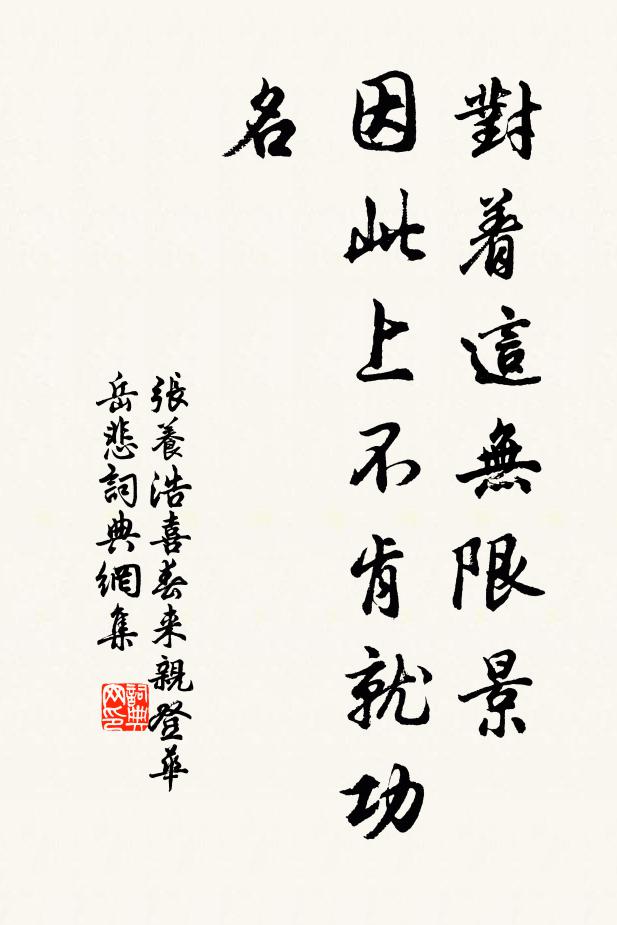 對着這無限景
因此上不肯就功
名
張養浩喜春来親登華
岳悲詞典網集
詞典
网印